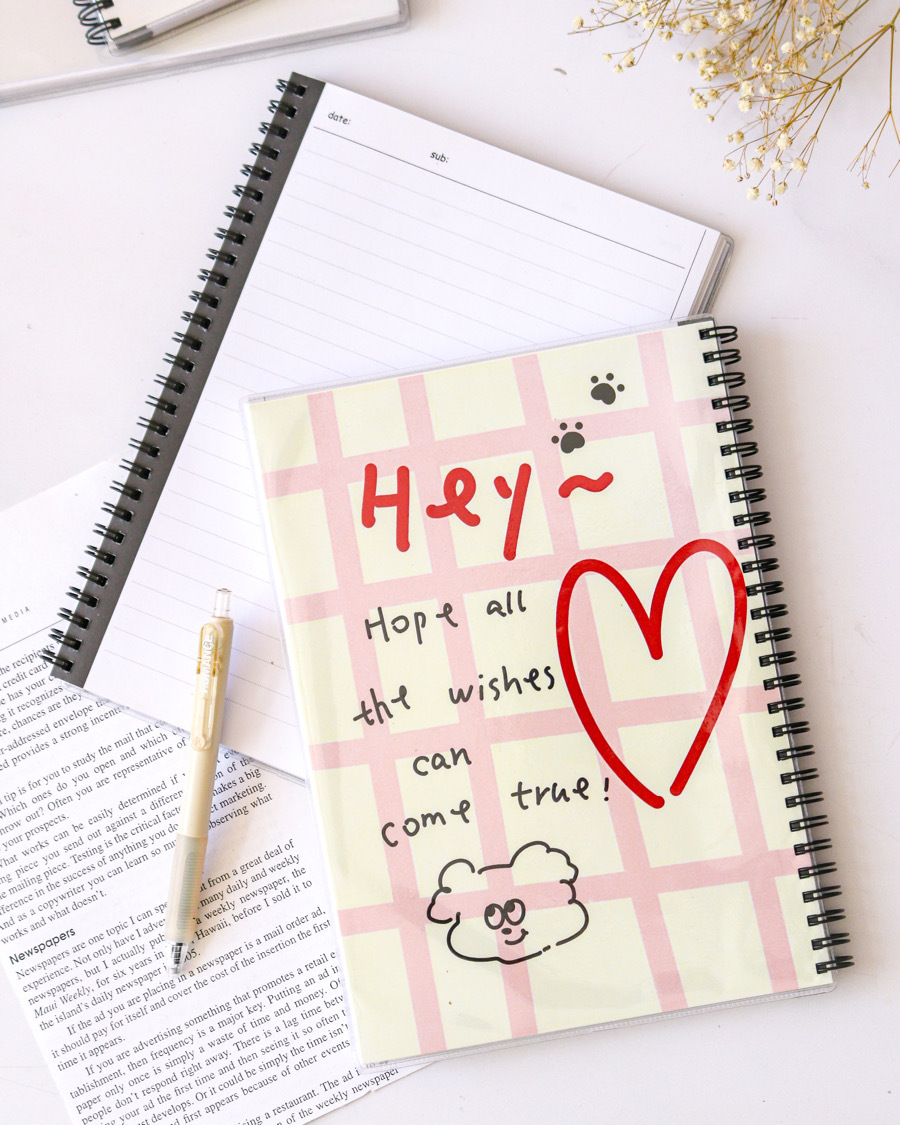 date:
sub:
Hey~
Hope all
the wishes
can
come true!
MEDIA
he recipients
credit card
e has your
g it recognizes
e, chances are they
-addressed envelope
d provides a strong incent
tip is for you to study the mail that
Which ones do you open and which
hrow out? Often you are representative of
your prospects.
What works can be easily determined if
ng piece you send out against a different of the
e mailing piece. Testing is the critical makes a big
ference in the success of anything you do marketing.
And as a copywriter you can learn so observing what
works and what doesn't.
Newspapers
Newspapers are one topic I can from a great deal of
experience. Not only have I many daily and weekly
newspapers, but I actually a weekly newspaper, the
Maui Weekly, for six years in Hawaii, before I sold it to
the island's daily newspaper
If the ad you are placing in a newspaper is a mail order ad,
it should pay for itself and cover the cost of the insertion the first
time it appears.
If you are advertising something that promotes a retail
tablishment, then frequency is a major key. Putting an ad in
paper only once is simply a waste of time and money.
people don't respond right away. There is a lag time
ing your ad the first time and then seeing it so often
st develops. Or it could be simply the time isn'
d first appears because of other events
sing a restaurant. The ad
n of the weekly newspaper